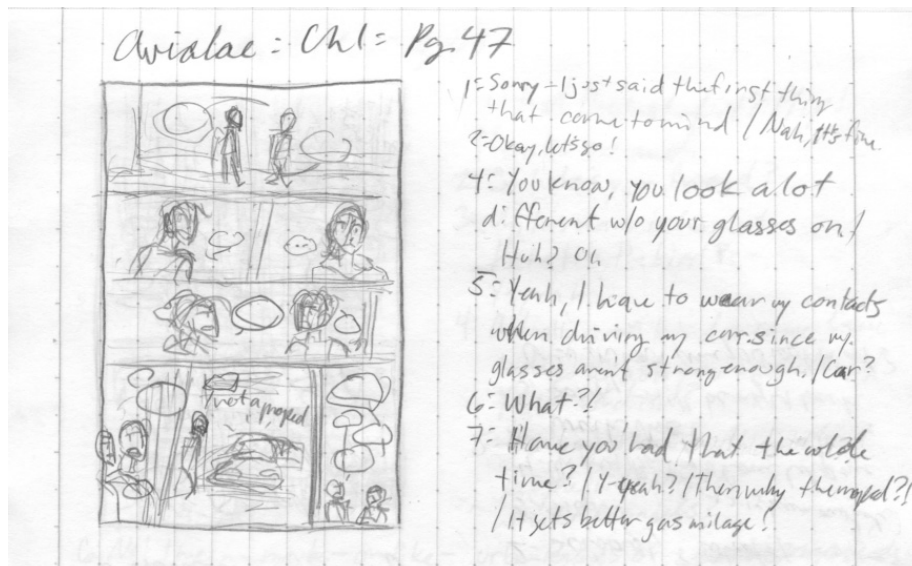 Avialae: Ch1: Pg. 47
1: Sorry - I just said the first thing
that come to mind / Nah, it's fine.
2: Okay, let's go!
4: You know, you look a lot
different w/o your glasses on /
Huh? Oh.
5: Yeah, I have to wear my contacts
when driving my car since my
glasses arent strong enough. / Car?
6: What?!
7: Have you had that the whole
time? / Y-yeah? / Then why the moped?!
/ It gets better gas milage!
*not a moped